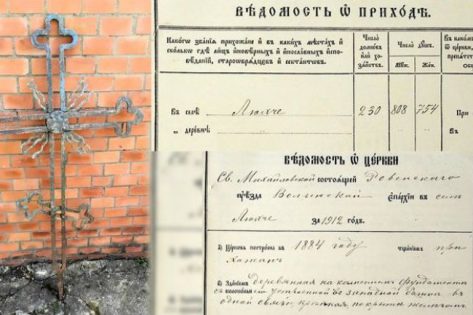 ВѢДОМОСТЬ Ѿ ПРИХОДѢ.
Какого званія прихожане и въ какихъ мѣстахъ и
сколько гдѣ лицъ иновѣрныхъ и инославныхъ испо-
вѣданій, старообрядцевъ и сектантовъ.
Число
домовъ
или хо-
зяйствъ.
Число душъ.
Муж.
Жен.
Въ селѣ Люхче 230 808 754
При
„ деревнѣ
ВѢДОМОСТЬ Ѿ ЦЕРКВИ
Св. Михайловской состоящей Ровенскаго
уѣзда Волынской епархіи въ селѣ
Люхче за 1912 годъ.
1) Церковь построена въ 1884 году
тщаніемъ при-
хожанъ
2) Зданіемъ деревянная на каменномъ фундаментѣ
съ колокольнею
въ одной связи крѣпкая покрыта желѣзомъ